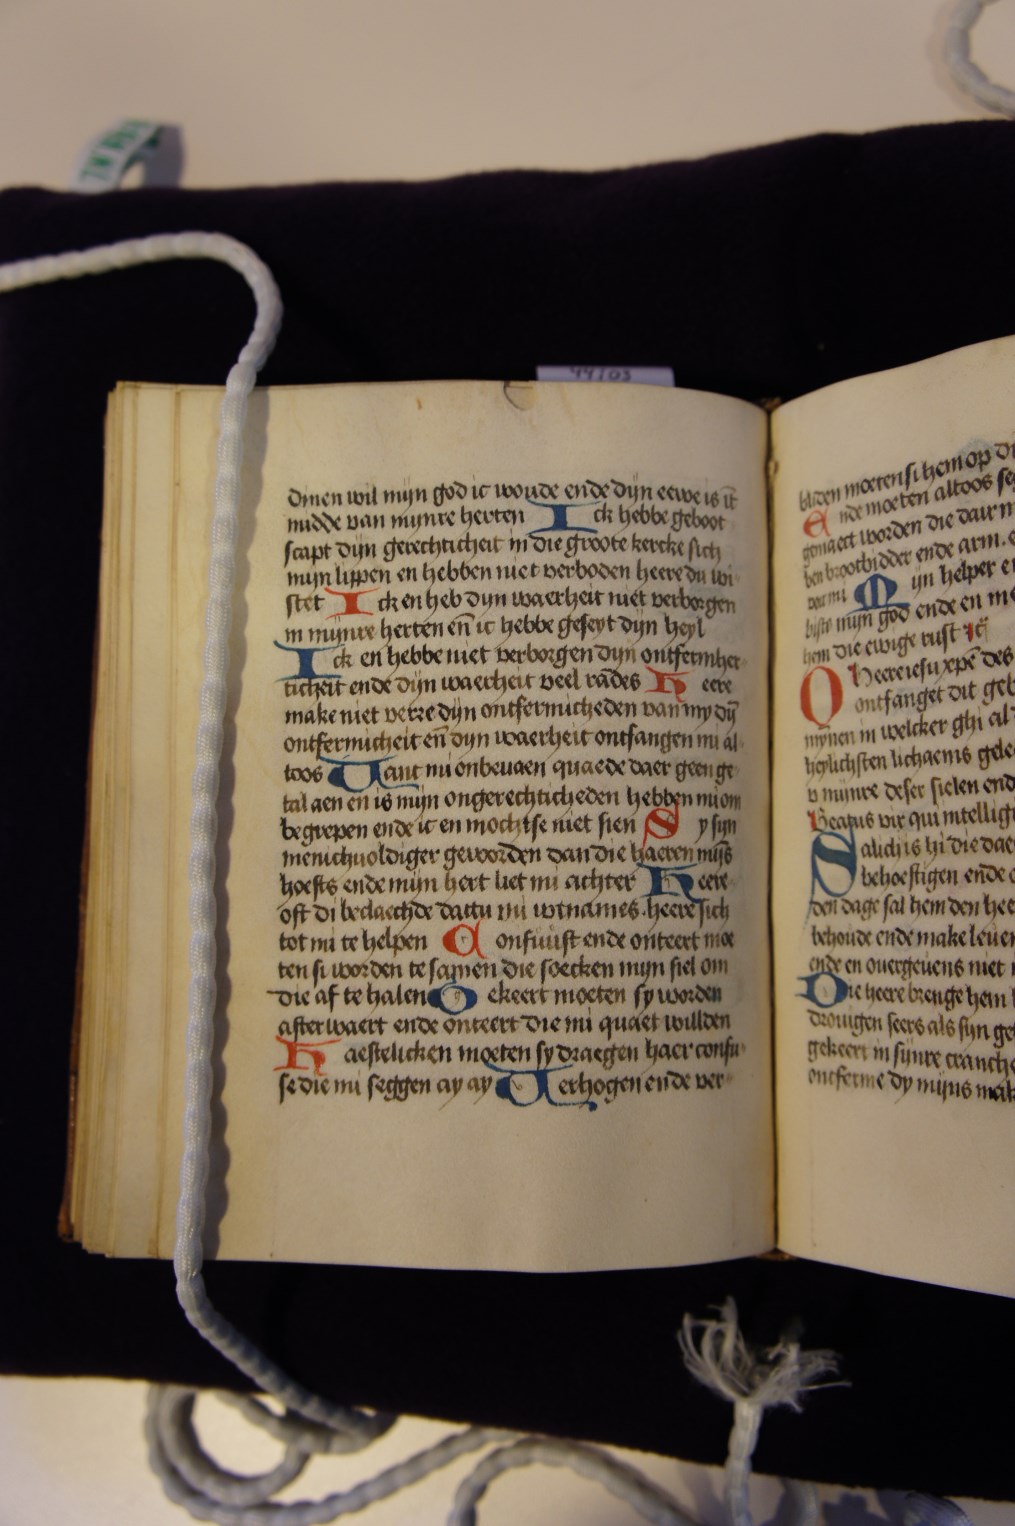 dinen wil mijn god ic woude ende dijn eewe is īt
midde van mijnre herten Ick hebbe geboot
scapt dijn gerechticheit in die groote kercke sich
mijn lippen en hebben niet verboden heere du wi
stet Ick en heb dijn waerheit niet verborgen
in mijnre herten en̄ ic hebbe geseyt dijn heyl
Ick en hebbe niet verborgen dijn ontfermher
ticheit ende dijn waerheit veel rādes Heere
make niet verre dijn ontfermicheden van my dij̄
ontfermicheit en̄ dijn waerheit ontfangen mi al
toos Want mi onbevaen quaede daer geen ge
tal aen en is mijn ongerechticheden hebben mi om
begrepen ende ic en mochtse niet sien Sy sijn
menichuoldiger geworden dan die haeren mijs̄
hoefts ende mijn hert liet mi achter Heere
oft di beclaechde dattu mi wtnames. heere sich
tot mi te helpen Confuust ende onteert moe
ten si worden te samen die soecken mijn siel om
die af te halen Gekeert moeten sy worden
afterwaert ende onteert die mi quaet willden
Haestelicken moeten sy draegen haer confu
se die mi seggen ay ay Verhogen ende ver
bliden moeten si hem op di
Ende moeten altoos se
gemaect worden die dair m
ben brootbidder ende arm. e
Mijn helper e
mijn god ende en me
hem die ewige rust
O heere iesu xpē des
ontfanget dit geb
mijnen in welcker ghi al
heylichsten lichaems gele
v mijnre deser sielen end
Beatus vir qui intelligi
Salich is hi die dae
behoeftigen ende
den dage sal hem den hee
behoude ende make leuen
ende en ouergeuens niet
Die heere brenge hem
drouigen seers als sijn ge
gekeert in sijnre cranche
ontferme dy mijns mak
44/03